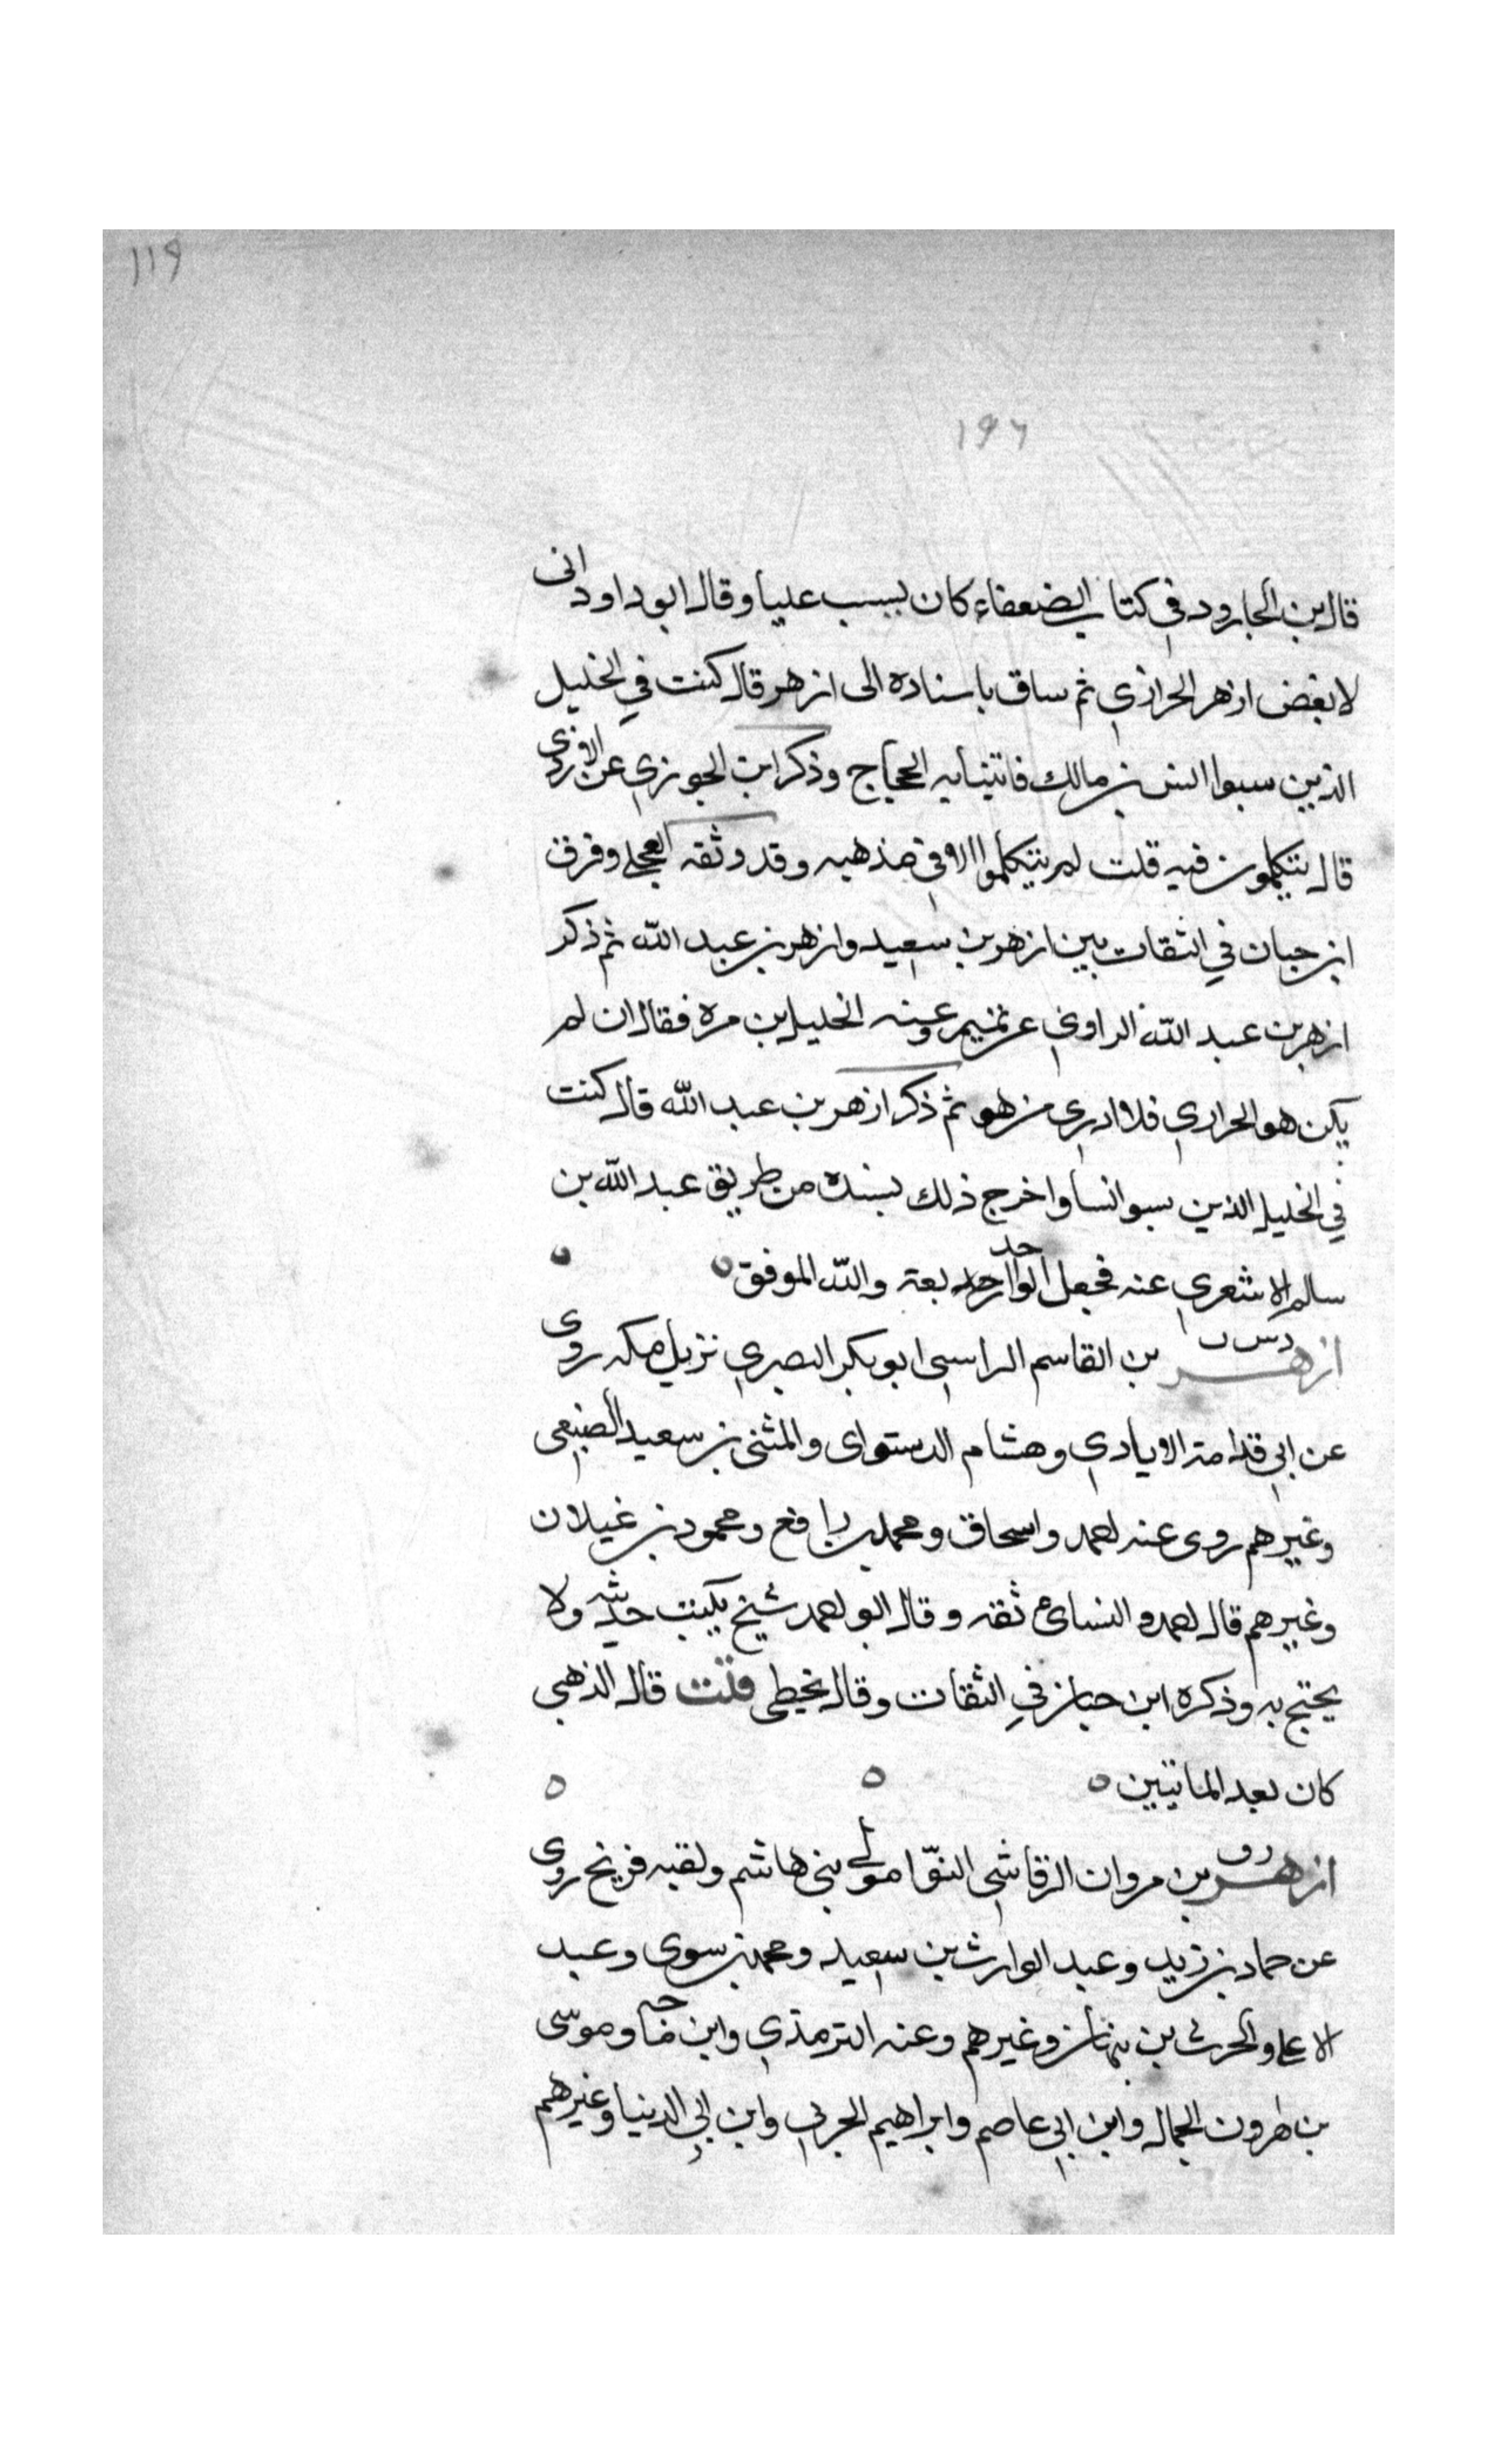 ١١٩
١٩٦
قال بن الجارود في كتاب الضعفاء كان يسب عليا وقال ابو داود انى
لابغض ازهر الحرازي ثم ساق باسناده الى ازهر قال كنت في الخليل
الذين سبوا انس بن مالك فاتينا به الحجاج وذكر ابن الجوزي عن الازدى
قال يتكلمون فيه قلت لم يتكلموا الا في مذهبه وقد وثقه العجلي وفرق
ابن حبان في الثقات بين ازهر بن سعيد وازهر بن عبد الله ثم ذكر
ازهر بن عبد الله الراوي عن تميم وعنه الخليل بن مرة فقال ان لم
يكن هو الحرازي فلا ادري من هو ثم ذكر ازهر بن عبد الله قال كنت
في الخليل الذين سبوا انسا واخرج ذلك بسنده من طريق عبد الله بن
سالم الاشعري عنه فجعل الواحد اربعة والله الموفق ه ه
ازهر د س ت بن القاسم الراسبي ابو بكر البصري نزيل مكه روى
عن ابي قدامة الايادي وهشام الدستواى والمثنى بن سعيد الضبعى
وغيرهم روى عنه احمد واسحاق ومحمد بن رافع ومحمود بن غيلان
وغيرهم قال احمد والنساى ثقة وقال ابو احمد شيخ يكتب حديثه ولا
يحتج به وذكره ابن حبان في الثقات وقال يخطى قلت قال الذهبي
كان بعد الماتيين ه ه ه
ازهر بن مروان الرقاشي النوا مولى بني هاشم ولقبه فريخ روى
عن حماد بن زيد وعبد الوارث بن سعيد ومحمد بن سوى وعبد
الاعلى والحرث بن نبهان وغيرهم وعنه الترمذي وابن ماجه وموسى
بن هارون الجمال وابن ابي عاصم وابراهيم الحربي وابن ابي الدنيا وغيرهم